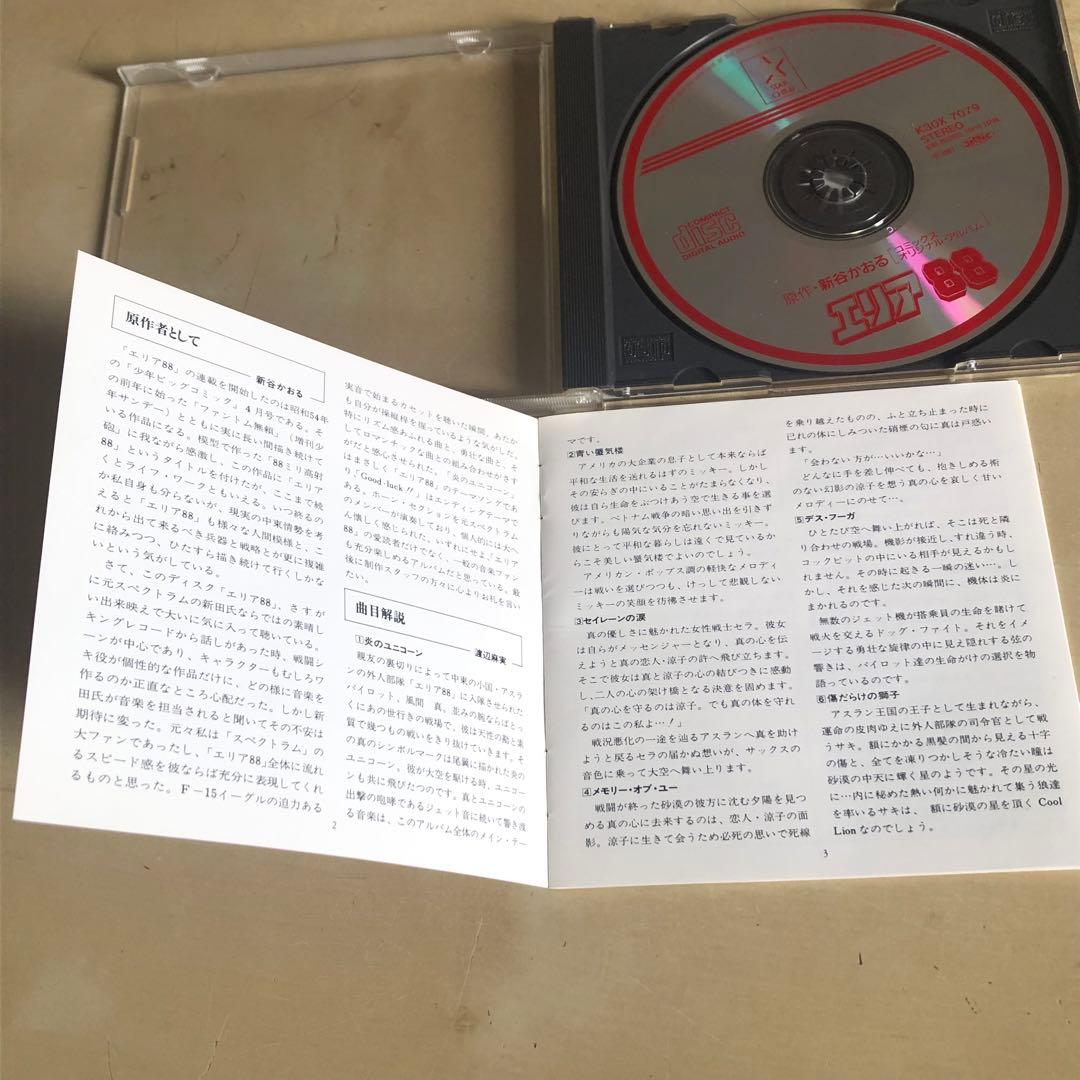 STAR
CHILD
K30X 7079
STEREO
COMPACT
disc
DIGITAL AUDIO
原作・新谷かおる
コミックス
オリジナル・アルバム
エリア88
原作者として
新谷かおる
「エリア88」の連載を開始したのは昭和54年
の「少年ビッグコミック」4月号である。そ
の前年に始った「ファントム無頼」（増刊少
年サンデー）とともに実に長い間描き続けて
いる作品になる。模型で作った“88ミリ高射
砲”に我ながら感激し、この作品に「エリア
88」というタイトルを付けたが、ここまで続
くとライフ・ワークともいえる。いつ終るの
か私自身も分らないが、現実の中東情勢を考
えると「エリア88」も様々な人間模様と、こ
れから出て来るべき兵器と戦略とが更に複雑
に絡みつつ、ひたすら描き続けて行くしかな
いという気がしている。
さて、このディスク「エリア88」、さすが
に元スペクトラムの新田氏ならではの素晴し
い出来映えで大いに気に入って聴いている。
キングレコードから話しがあった時、戦闘シ
ーンが中心であり、キャラクターもむしろワ
キ役が個性的な作品だけに、どの様に音楽を
作るのか正直なところ心配だった。しかし新
田氏が音楽を担当されると聞いてその不安は
期待に変った。元々私は「スペクトラム」の
大ファンであったし、「エリア88」全体に流れ
るスピード感を彼ならば充分に表現してくれ
るものと思った。F－15イーグルの迫力ある
実音で始まるカセットを聴いた瞬間、あたか
も自分が操縦桿を握っているような気がした。
特にリズム感あふれる曲と、勇壮な曲と、そ
してロマンチックな曲との組み合わせがさす
がだと感心させられた。「炎のユニコーン」
はまさしく「エリア88」のテーマソングであ
り、「Good-luck!!」はエンディングテーマで
ある。ホーン・セクションを元スペクトラム
のメンバーが演奏しており、個人的には大へ
ん懐しく感じられた。いずれにせよ「エリア
88」の愛読者だけでなく、一般の音楽ファン
も充分楽しめるアルバムだと思っている。最
後に制作スタッフの方々に心よりお礼を言い
たい。
曲目解説
渡辺麻実
①炎のユニコーン
親友の裏切りによって中東の小国・アスラ
ンの外人部隊「エリア88」に入隊させられた
パイロット、風間　真。並みの腕ならばとっ
くにあの世行きの戦場で、彼は天性の勘と素
質で幾つもの戦いをきり抜けていきます。そ
の真のシンボルマークは尾翼に描かれた炎の
ユニコーン。彼が大空を駆ける時、ユニコー
ンも共に飛びたつのです。真とユニコーンの
出撃の咆哮であるジェット音に続いて響き渡
る音楽は、このアルバム全体のメイン・テー
2
マです。
②青い蜃気楼
アメリカの大企業の息子として本来ならば
平和な生活を送れるはずのミッキー。しかし
その安らぎの中にいることがたまらなくなり、
彼は自ら生命をぶつけあう空で生きる事を選
びます。ベトナム戦争の暗い思い出を引きず
りながらも陽気な気分を忘れないミッキー。
彼にとって平和な暮らしは遠くで見ているか
らこそ美しい蜃気楼でよいのでしょう。
アメリカン・ポップス調の軽快なメロディ
ーは戦いを選びつつも、けっして悲観しない
ミッキーの笑顔を彷彿させます。
③セイレーンの涙
真の優しさに魅かれた女性戦士セラ。彼女
は自らがメッセンジャーとなり、真の心を伝
えようと真の恋人・涼子の許へ飛び立ちます。
そこで彼女は真と涼子の心の結びつきに感動
し、二人の心の架け橋となる決意を固めます。
「真の心を守るのは涼子。でも真の体を守れ
るのはこの私よ…！」
戦況悪化の一途を辿るアスランへ真を助け
ようと戻るセラの届かぬ想いが、サックスの
音色に乗って大空へ舞い上ります。
④メモリー・オブ・ユー
戦闘が終った砂漠の彼方に沈む夕陽を見つ
める真の心に去来するのは、恋人・涼子の面
影。涼子に生きて会うため必死の思いで死線
を乗り越えたものの、ふと立ち止まった時に
已れの体にしみついた硝煙の匂に真は戸惑い
ます。
「会わない方が…いいかな…」
どんなに手を差し伸べても、抱きしめる術
のない幻影の涼子を想う真の心を哀しく甘い
メロディーにのせて…。
⑤デス・フーガ
ひとたび空へ舞い上がれば、そこは死と隣
り合わせの戦場。機影が接近し、すれ違う時、
コックピットの中にいる相手が見えるかもし
れません。その時に起きる一瞬の迷い…。し
かし、それを感じた次の瞬間に、機体は炎に
まかれるのです。
無数のジェット機が搭乗員の生命を賭けて
戦火を交えるドッグ・ファイト。それをイメ
ージする勇壮な旋律の中に見え隠れする弦の
響きは、パイロット達の生命がけの選択を物
語っているのです。
⑥傷だらけの獅子
アスラン王国の王子として生まれながら、
運命の皮肉ゆえに外人部隊の司令官として戦
うサキ。額にかかる黒髪の間から見える十字
の傷と、全てを凍りつかしそうな冷たい瞳は
砂漠の中天に輝く星のようです。その星の光
に…内に秘めた熱い何かに魅かれて集う狼達
を率いるサキは、額に砂漠の星を頂く Cool
Lion なのでしょう。
3